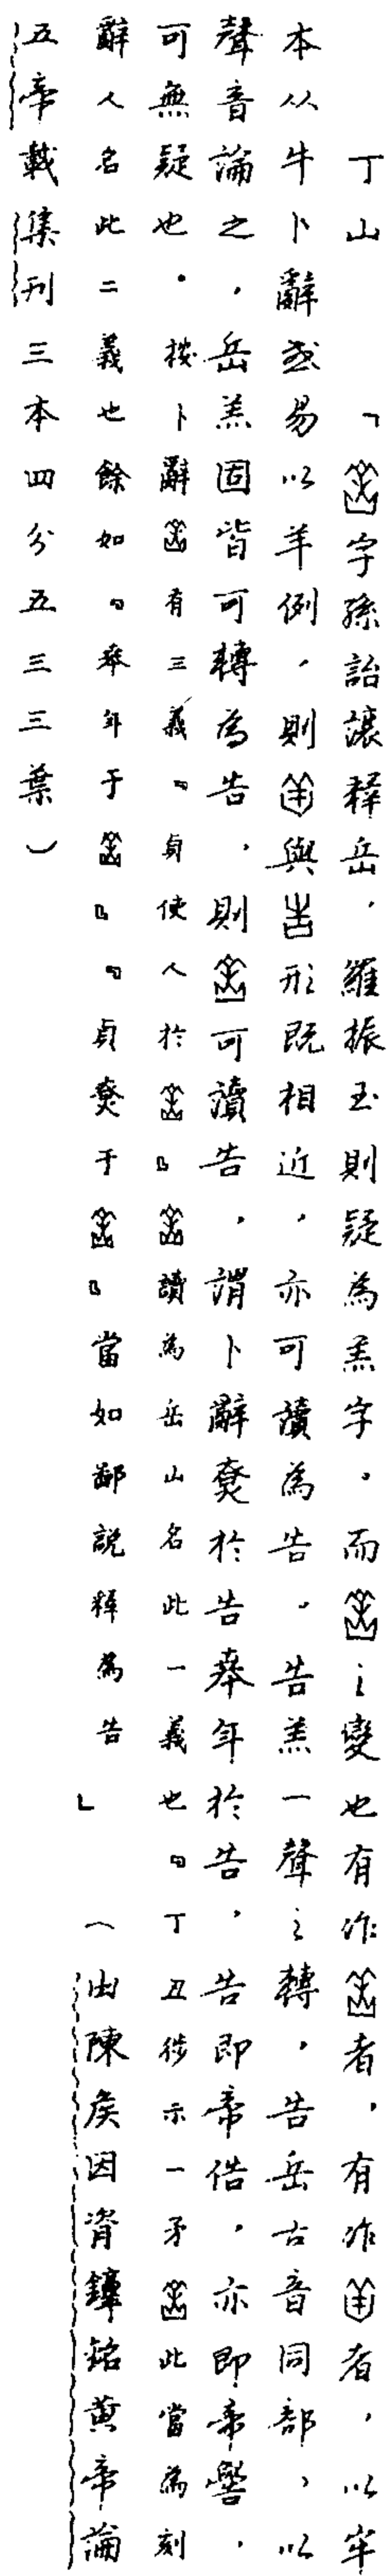 丁山　「字孫詒讓釋岳，羅振玉則疑為羔字。而之變也有作者，有作者，以牢
本从牛卜辭或易以羊例，則與告形既相近，亦可讀為告。告羔一聲之轉，告岳古音同部，以
聲音論之，岳羔固皆可轉為告，則可讀告，謂卜辭尞於告𠦪年於告，告即帝俈，亦即帝嚳，
可無疑也。按卜辭有三義『貞使人於』讀為岳山名此一義也『丁丑徙示一矛此當為刻
辭人名此二義也餘如『𠦪年于』『貞尞于』當如鄙說釋為告」　（由陳矦因𬯎鐏銘黃帝論
五帝載集刊三本四分五三三葉）